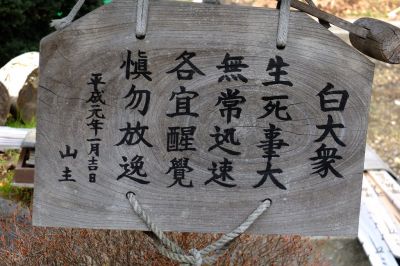 白大衆
生死事大
無常迅速
各宜醒覺
慎勿放逸
平成元年一月吉日
山主